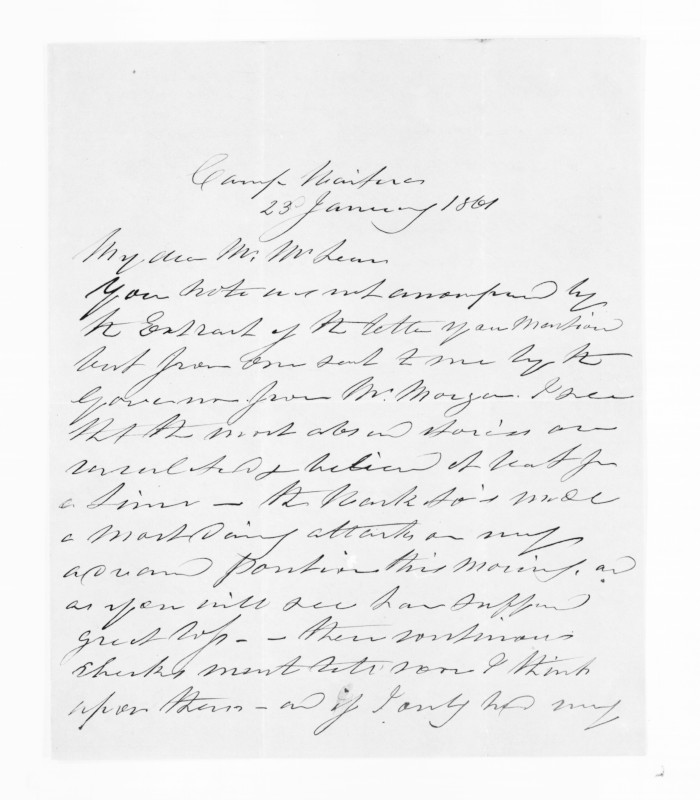 Camp Waitara
23d January 1861
My dear Mr McLean
Your note was not accompanied by
the Extract of the letter you mention
but from one sent to me by the
Governor from Mr Morgan. I see
that the most absurd stories are
circulated & believed at least for
a time — the Waikato's made
a most daring attack on my
advanced position this morning, and
as you will see have suffered
great loss — these continuous
checks must tell soon I think
upon them — and if I only had my